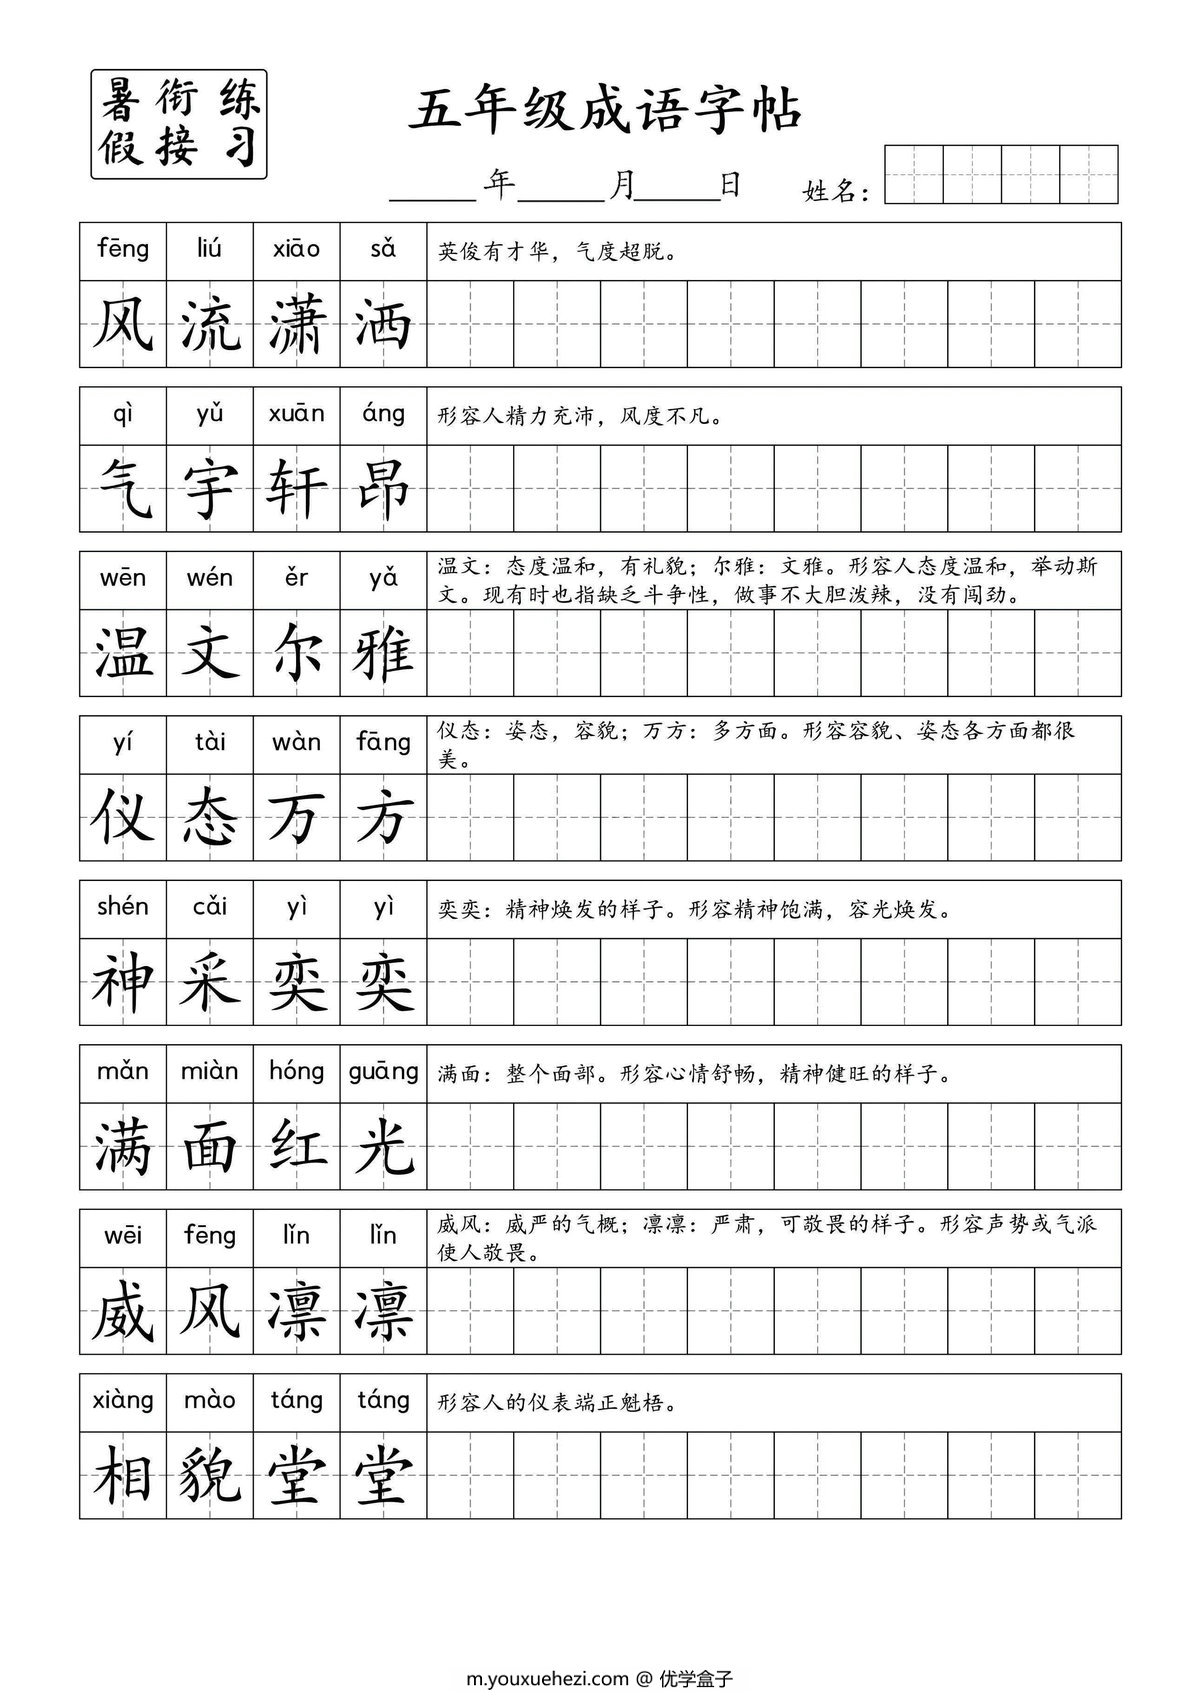 暑衔练
假接习
五年级成语字帖
年 月 日 姓名：
fēng liú xiāo sǎ 英俊有才华，气度超脱。
风流潇洒
qì yǔ xuān áng 形容人精力充沛，风度不凡。
气宇轩昂
wēn wén ěr yǎ 温文：态度温和，有礼貌；尔雅：文雅。形容人态度温和，举动斯
文。现有时也指缺乏斗争性，做事不大胆泼辣，没有闯劲。
温文尔雅
yí tài wàn fāng 仪态：姿态，容貌；万方：多方面。形容容貌、姿态各方面都很
美。
仪态万方
shén cǎi yì yì 奕奕：精神焕发的样子。形容精神饱满，容光焕发。
神采奕奕
mǎn miàn hóng guāng 满面：整个面部。形容心情舒畅，精神健旺的样子。
满面红光
wēi fēng lǐn lǐn 威风：威严的气概；凛凛：严肃，可敬畏的样子。形容声势或气派
使人敬畏。
威风凛凛
xiàng mào táng táng 形容人的仪表端正魁梧。
相貌堂堂
m.youxuehezi.com @ 优学盒子